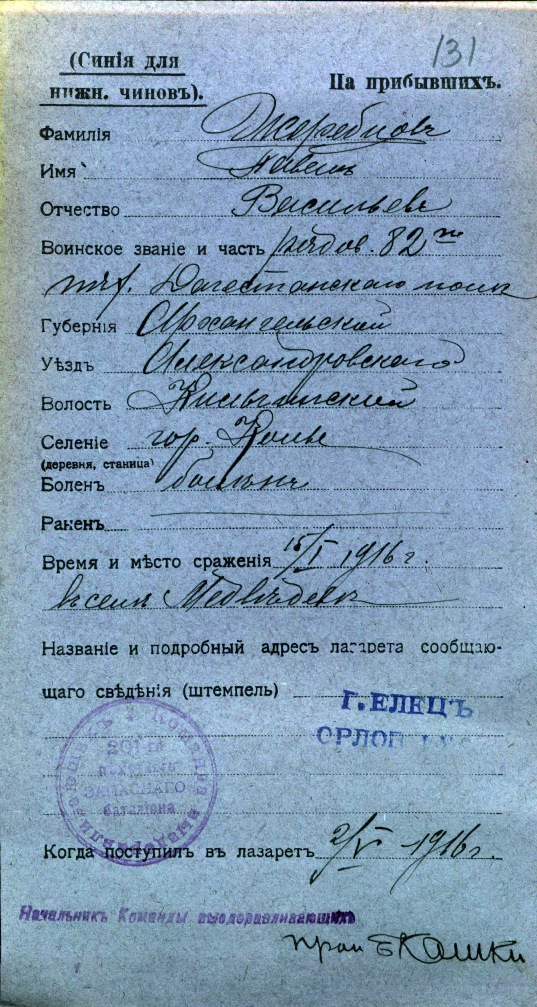 131
(Синія для
нижн. чиновъ).
На прибывшихъ.
Фамилія Жеребцовъ
Имя Павелъ
Отчество Васильевъ
Воинское званіе и часть рядов. 82го
пѣх. Дагестанскаго полк
Губернія Архангельской
Уѣздъ Александровскаго
Волость
Селеніе гор. Колы
(деревня, станица)
Боленъ боленъ
Раненъ
Время и мѣсто сраженія 15/I 1916 г.
въ селѣ
Названіе и подробный адресъ лазарета сообщаю-
щаго свѣдѣнія (штемпель)
Г. ЕЛЕЦЪ
ОРЛОВ
Команда выздоравливающихъ
201 го
пѣхотнаго
ЗАПАСНАГО
баталіона
Когда поступилъ въ лазаретъ 2/V 1916 г.
Начальникъ Команды выздоравливающихъ
прап